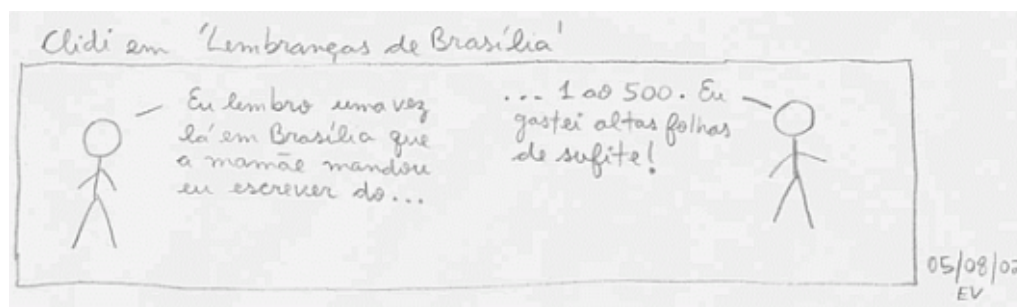 Clidi em 'Lembranças de Brasília'
Eu lembro uma vez
lá em Brasília que
a mamãe mandou
eu escrever do...
... 1 ao 500. Eu
gastei altas folhas
de sufite!
05/08/02
EV